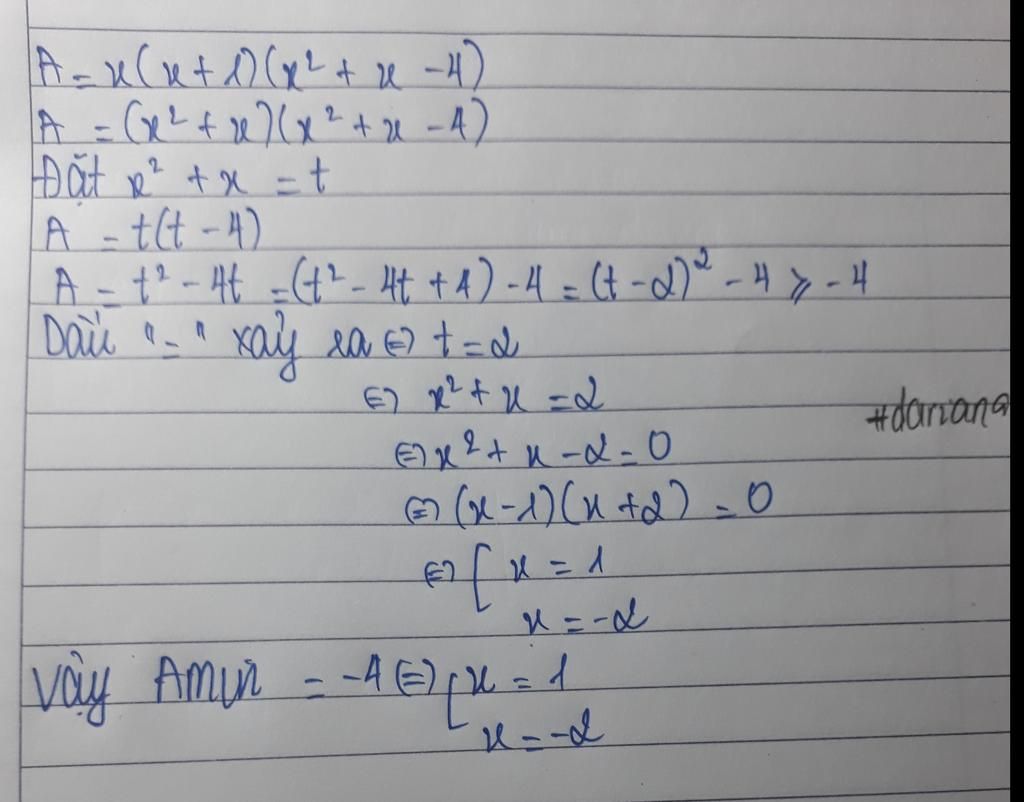 A = x(x+1)(x² + x - 4)
A = (x² + x)(x² + x - 4)
Đặt x² + x = t
A = t(t - 4)
A = t² - 4t = (t² - 4t + 4) - 4 = (t - 2)² - 4 ⩾ -4
Dấu "=" xảy ra ⇔ t = 2
⇔ x² + x = 2
#dariana
⇔ x² + x - 2 = 0
⇔ (x - 1)(x + 2) = 0
⇔ [ x = 1
x = -2
Vậy Amin = -4 ⇔ [ x = 1
x = -2